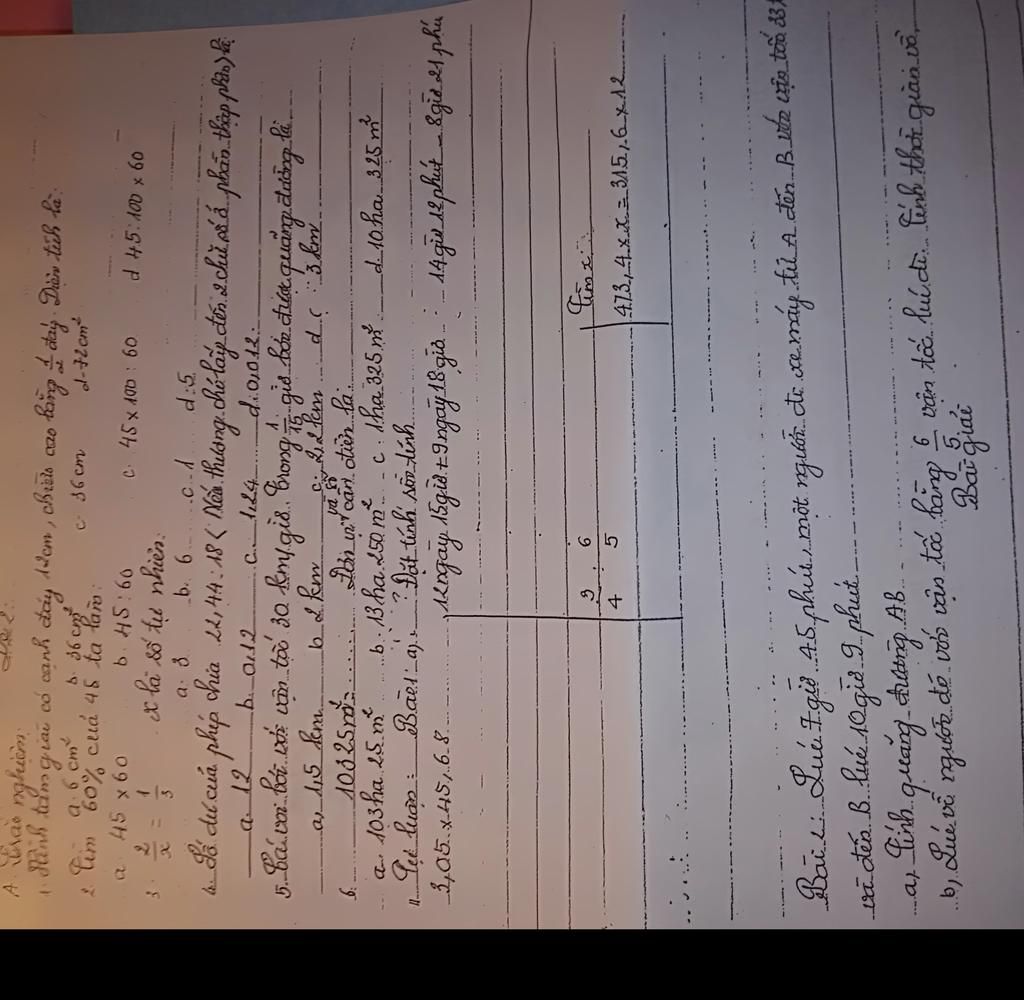 A. Trắc nghiệm:
1. Hình tam giác có cạnh đáy 12cm, chiều cao bằng 1/2 đáy. Diện tích là:
a. 6 cm² b. 36 cm² c. 36 cm d. 72 cm²
2. Tìm 60% của 45 ta làm:
a. 45 × 60 b. 45 : 60 c. 45 × 100 : 60 d. 45 : 100 × 60
3. 2/x = 1/3 x là số tự nhiên:
a. 3 b. 6 c. 1 d. 5
4. Số dư của phép chia 22,44 : 18 (Nếu thương chỉ lấy đến 2 chữ số ở phần thập phân) là
a. 12 b. 0,12 c. 1,24 d. 0,012
5. với vận tốc 30 km/giờ. Trong 1/15 giờ được quãng đường là
a, 1,5 km b. 2 km c. 2,2 km d. 3 km
6. 10325m² = ..... Đơn vị và số cần điền là:
a. 103ha 25 m² b. 13ha 250 m² c. 1ha 325 m² d. 10ha 325 m²
II. Tự luận: Bài 1: a, ? Đặt tính rồi tính
3,05 × 45,6.8 12 ngày 15 giờ + 9 ngày 18 giờ : 14 giờ 12 phút - 8 giờ 21 phú
3/4 : 6/5 Tìm x:
473,4 × x = 315,6 × 12
Bài 2: Lúc 7 giờ 45 phút, một người đi xe máy từ A đến B với vận tốc 33
và đến B lúc 10 giờ 9 phút.
a, Tính quãng đường AB.
b, Lúc về người đó với vận tốc bằng 6/5 vận tốc lúc đi. Tính thời gian về.
Bài giải